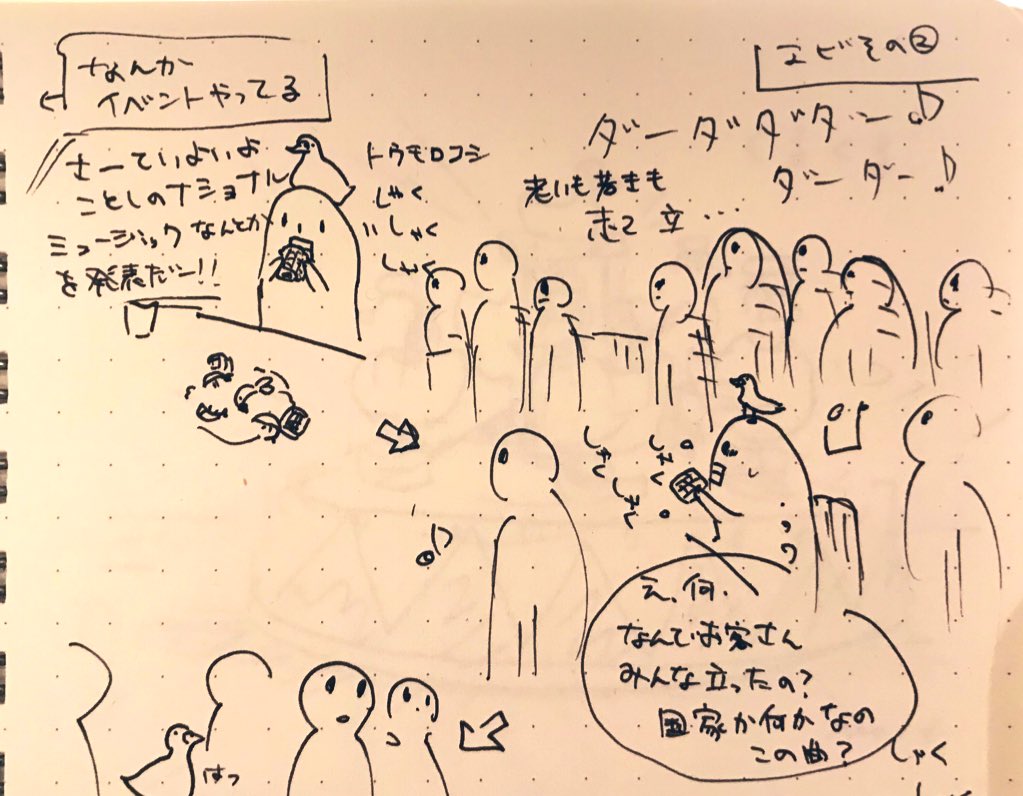 エビその②
ダーダダダター♪
ダーダー♪
なんか
イベントやってる
さーていよいよ
ことしのナショナル
ミュージックなんとか
を発表だー!!
トウモロコシ
しゃく
しゃく
しゃく
老いも若きも
立…
しゃく
しゃく
しゃく
え、何.
なんでお客さん
みんな立ったの?
国家か何かなの
この曲?
しゃく
はっ